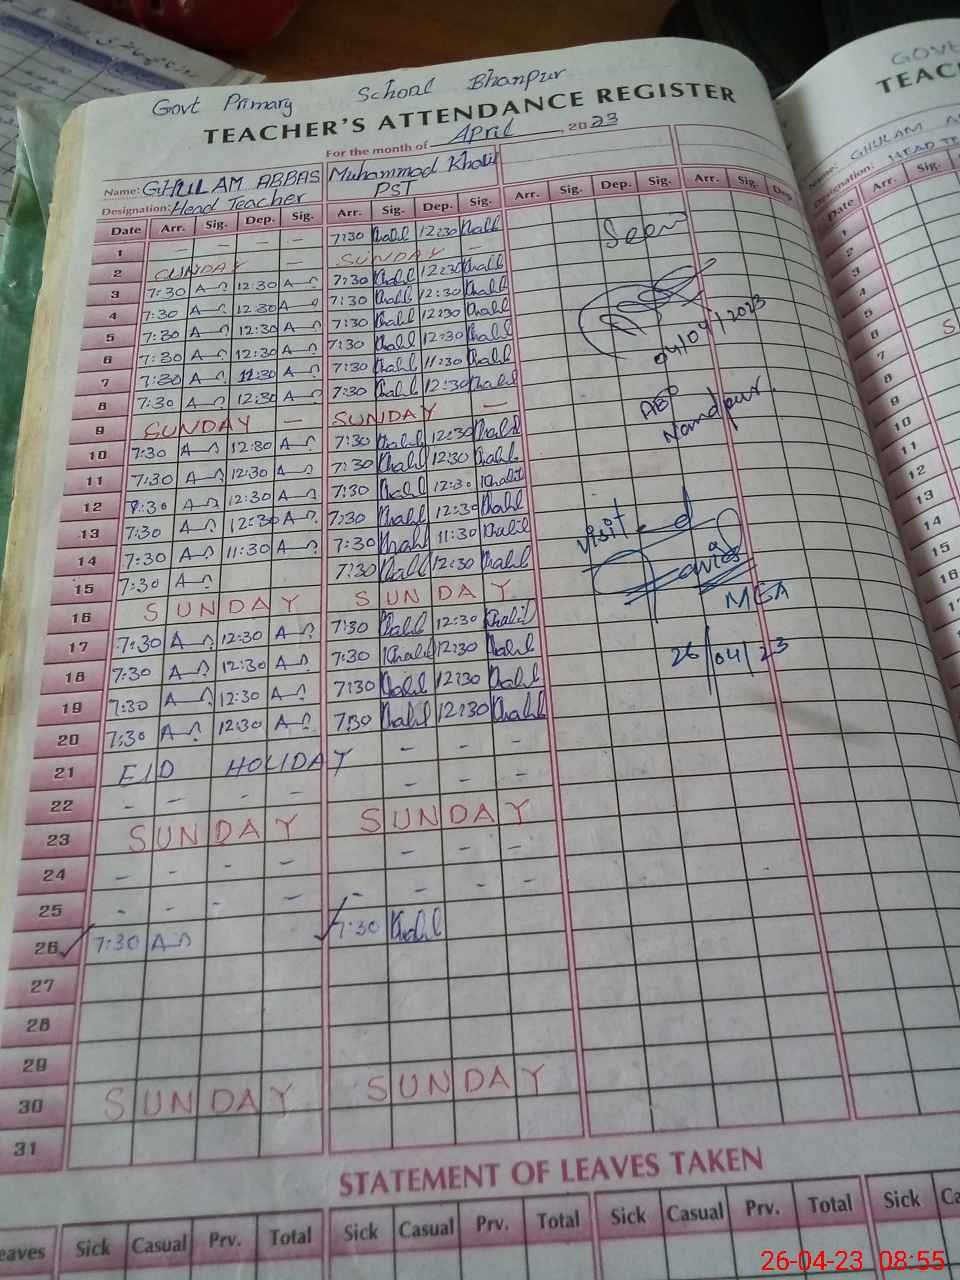 Govt Primary School Bhanpur
TEACHER'S ATTENDANCE REGISTER
For the month of April, 2023
Name: GHULAM ABBAS Muhammad Khalil
Designation: Head Teacher PST
Date Arr. Sig. Dep. Sig. Arr. Sig. Dep. Sig. Arr. Sig. Dep. Sig. Arr. Sig. Dep.
1 - - - 7:30 Khalil 12:30 Khalil
2 SUNDAY - SUNDAY -
3 7:30 A 12:30 A 7:30 Khalil 12:30 Khalil
4 7:30 A 12:30 A 7:30 Khalil 12:30 Khalil
5 7:30 A 12:30 A 7:30 Khalil 12:30 Khalil
6 7:30 A 12:30 A 7:30 Khalil 12:30 Khalil
7 7:30 A 11:30 A 7:30 Khalil 11:30 Khalil
8 7:30 A 12:30 A 7:30 Khalil 12:30 Khalil
9 SUNDAY - SUNDAY -
10 7:30 A 12:30 A 7:30 Khalil 12:30 Khalil
11 7:30 A 12:30 A 7:30 Khalil 12:30 Khalil
12 7:30 A 12:30 A 7:30 Khalil 12:30 Khalil
13 7:30 A 12:30 A 7:30 Khalil 12:30 Khalil
14 7:30 A 11:30 A 7:30 Khalil 11:30 Khalil
15 7:30 A 7:30 Khalil 12:30 Khalil
16 SUNDAY SUNDAY
17 7:30 A 12:30 A 7:30 Khalil 12:30 Khalil
18 7:30 A 12:30 A 7:30 Khalil 12:30 Khalil
19 7:30 A 12:30 A 7:30 Khalil 12:30 Khalil
20 7:30 A 12:30 A 7:30 Khalil 12:30 Khalil
21 EID HOLIDAY - - -
22 - - - - - - -
23 SUNDAY SUNDAY
24 - - - - - -
25 - - - - - - - -
26 7:30 A 7:30 Khalil
27
28
29
30 SUNDAY SUNDAY
31
Seen
04/04/2023
Nandpur
visited
Javid
MEA
26/04/23
STATEMENT OF LEAVES TAKEN
eaves Sick Casual Prv. Total Sick Casual Prv. Total Sick Casual Prv. Total Sick Ca
GOVT
TEAC
Name: GHULAM A
Designation: HEAD TE
Date Arr. Sig.
1
2
3
4
5
6 S
7
8
9
10
11
12
13
14
15
16
26-04-23 08:55